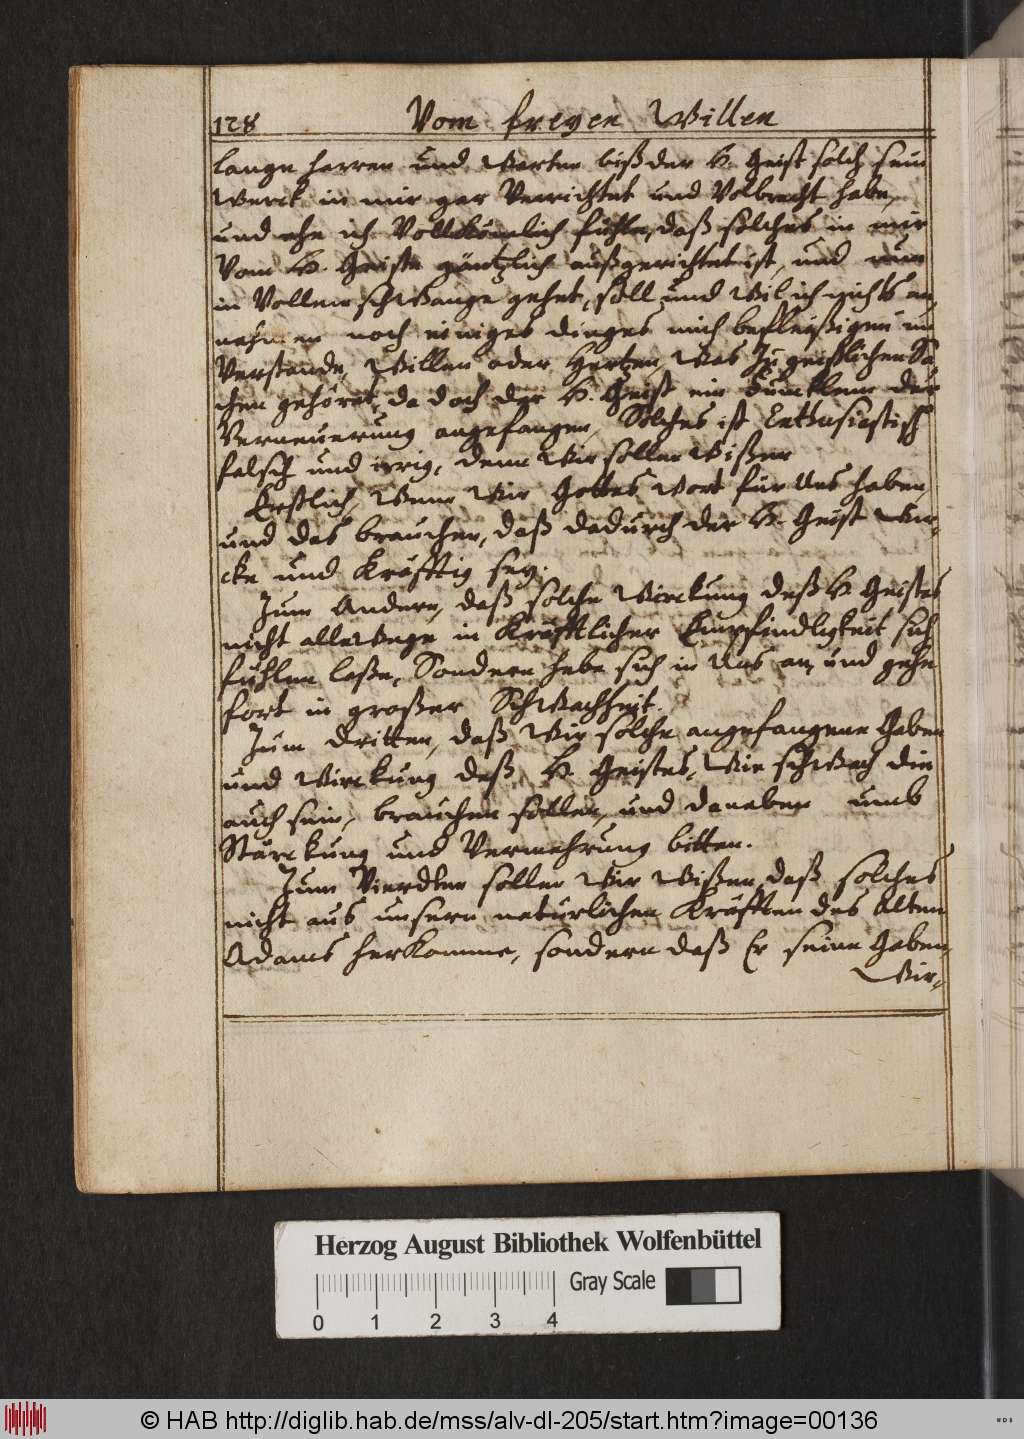 128
Vom freyen Willen
lange harren und Warten biß der H. Geist solch sein
Werck in mir gar Verrichtet und Volbracht habe,
und ehe ich Vollekömlich fühle, daß solches in mir
Vom H. Geiste gäntzlich außgerichtet ist, und nun
in Vollem schWange gehet, soll und Wil ich nichts an,
nehmen noch einiges dinges mich befleißigen im
Verstande, Willen oder Hertzen Was Zu geistlichen Sa
chen gehöret, da doch der H. Geist ein Füncklein der
Verneuerung angefangen, Solches ist Enthusiastisch
falsch und irrig, denn Wir sollen Wißen
Erstlich, Wenn Wir Gottes Wort für Uns haben,
und das brauchen, daß dadurch der H. Geist Wir-
cke und Kräfftig sey.
Zum Andern, daß solche Wirckung deß H. Geistes
nicht alleWege in Kräfftlicher Empfindligkeit sich
fühlen laße, Sondern habe sich in Uns an, und gehe
fort in großer SchWachheit.
Zum dritten, daß Wir solche angefangene Gaben
und Wirckung deß H. Geistes, Wie schWach die
auch sein, brauchen sollen, und daneben umb
Stärckung und Vermehrung bitten.
Zum Vierdten sollen Wir Wißen, daß solches
nicht aus unsern natürlichen Kräfften des Alten
Adams herKomme, sondern daß Er seine Gaben,
Wir-
Herzog August Bibliothek Wolfenbüttel
Gray Scale
0 1 2 3 4
© HAB http://diglib.hab.de/mss/alv-dl-205/start.htm?image=00136
WDB